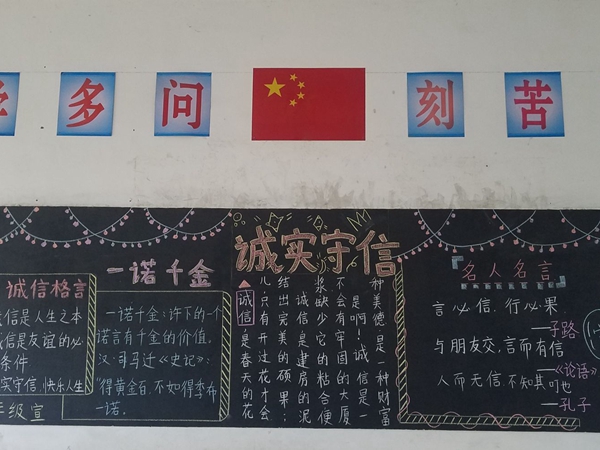 多 问 刻 苦
诚实守信
诚信格言
信是人生之本
信是友谊的必
条件
实守信,快乐人生
年级宣
一诺千金
一诺千金:许下的一个
诺言有千金的价值。
汉·司马迁《史记》:
“得黄金百,不如得季布
一诺。
诚信是春天的花
儿只有开过花才会
结出完美的硕果;
诚信是建房的泥
浆缺少它的粘合便
不会有牢固的大厦
是啊!诚信是一
种美德是一种财富
名人名言
言必信,行必果
——子路
与朋友交,言而有信
——《论语》
人而无信,不知其可也
——孔子